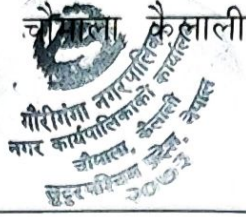 चौमाला, कैलाली
गौरीगंगा नगरपालिका
नगर कार्यपालिकाको कार्यालय
चौमाला, कैलाली
सुदूरपश्चिम प्रदेश, नेपाल
२०७३